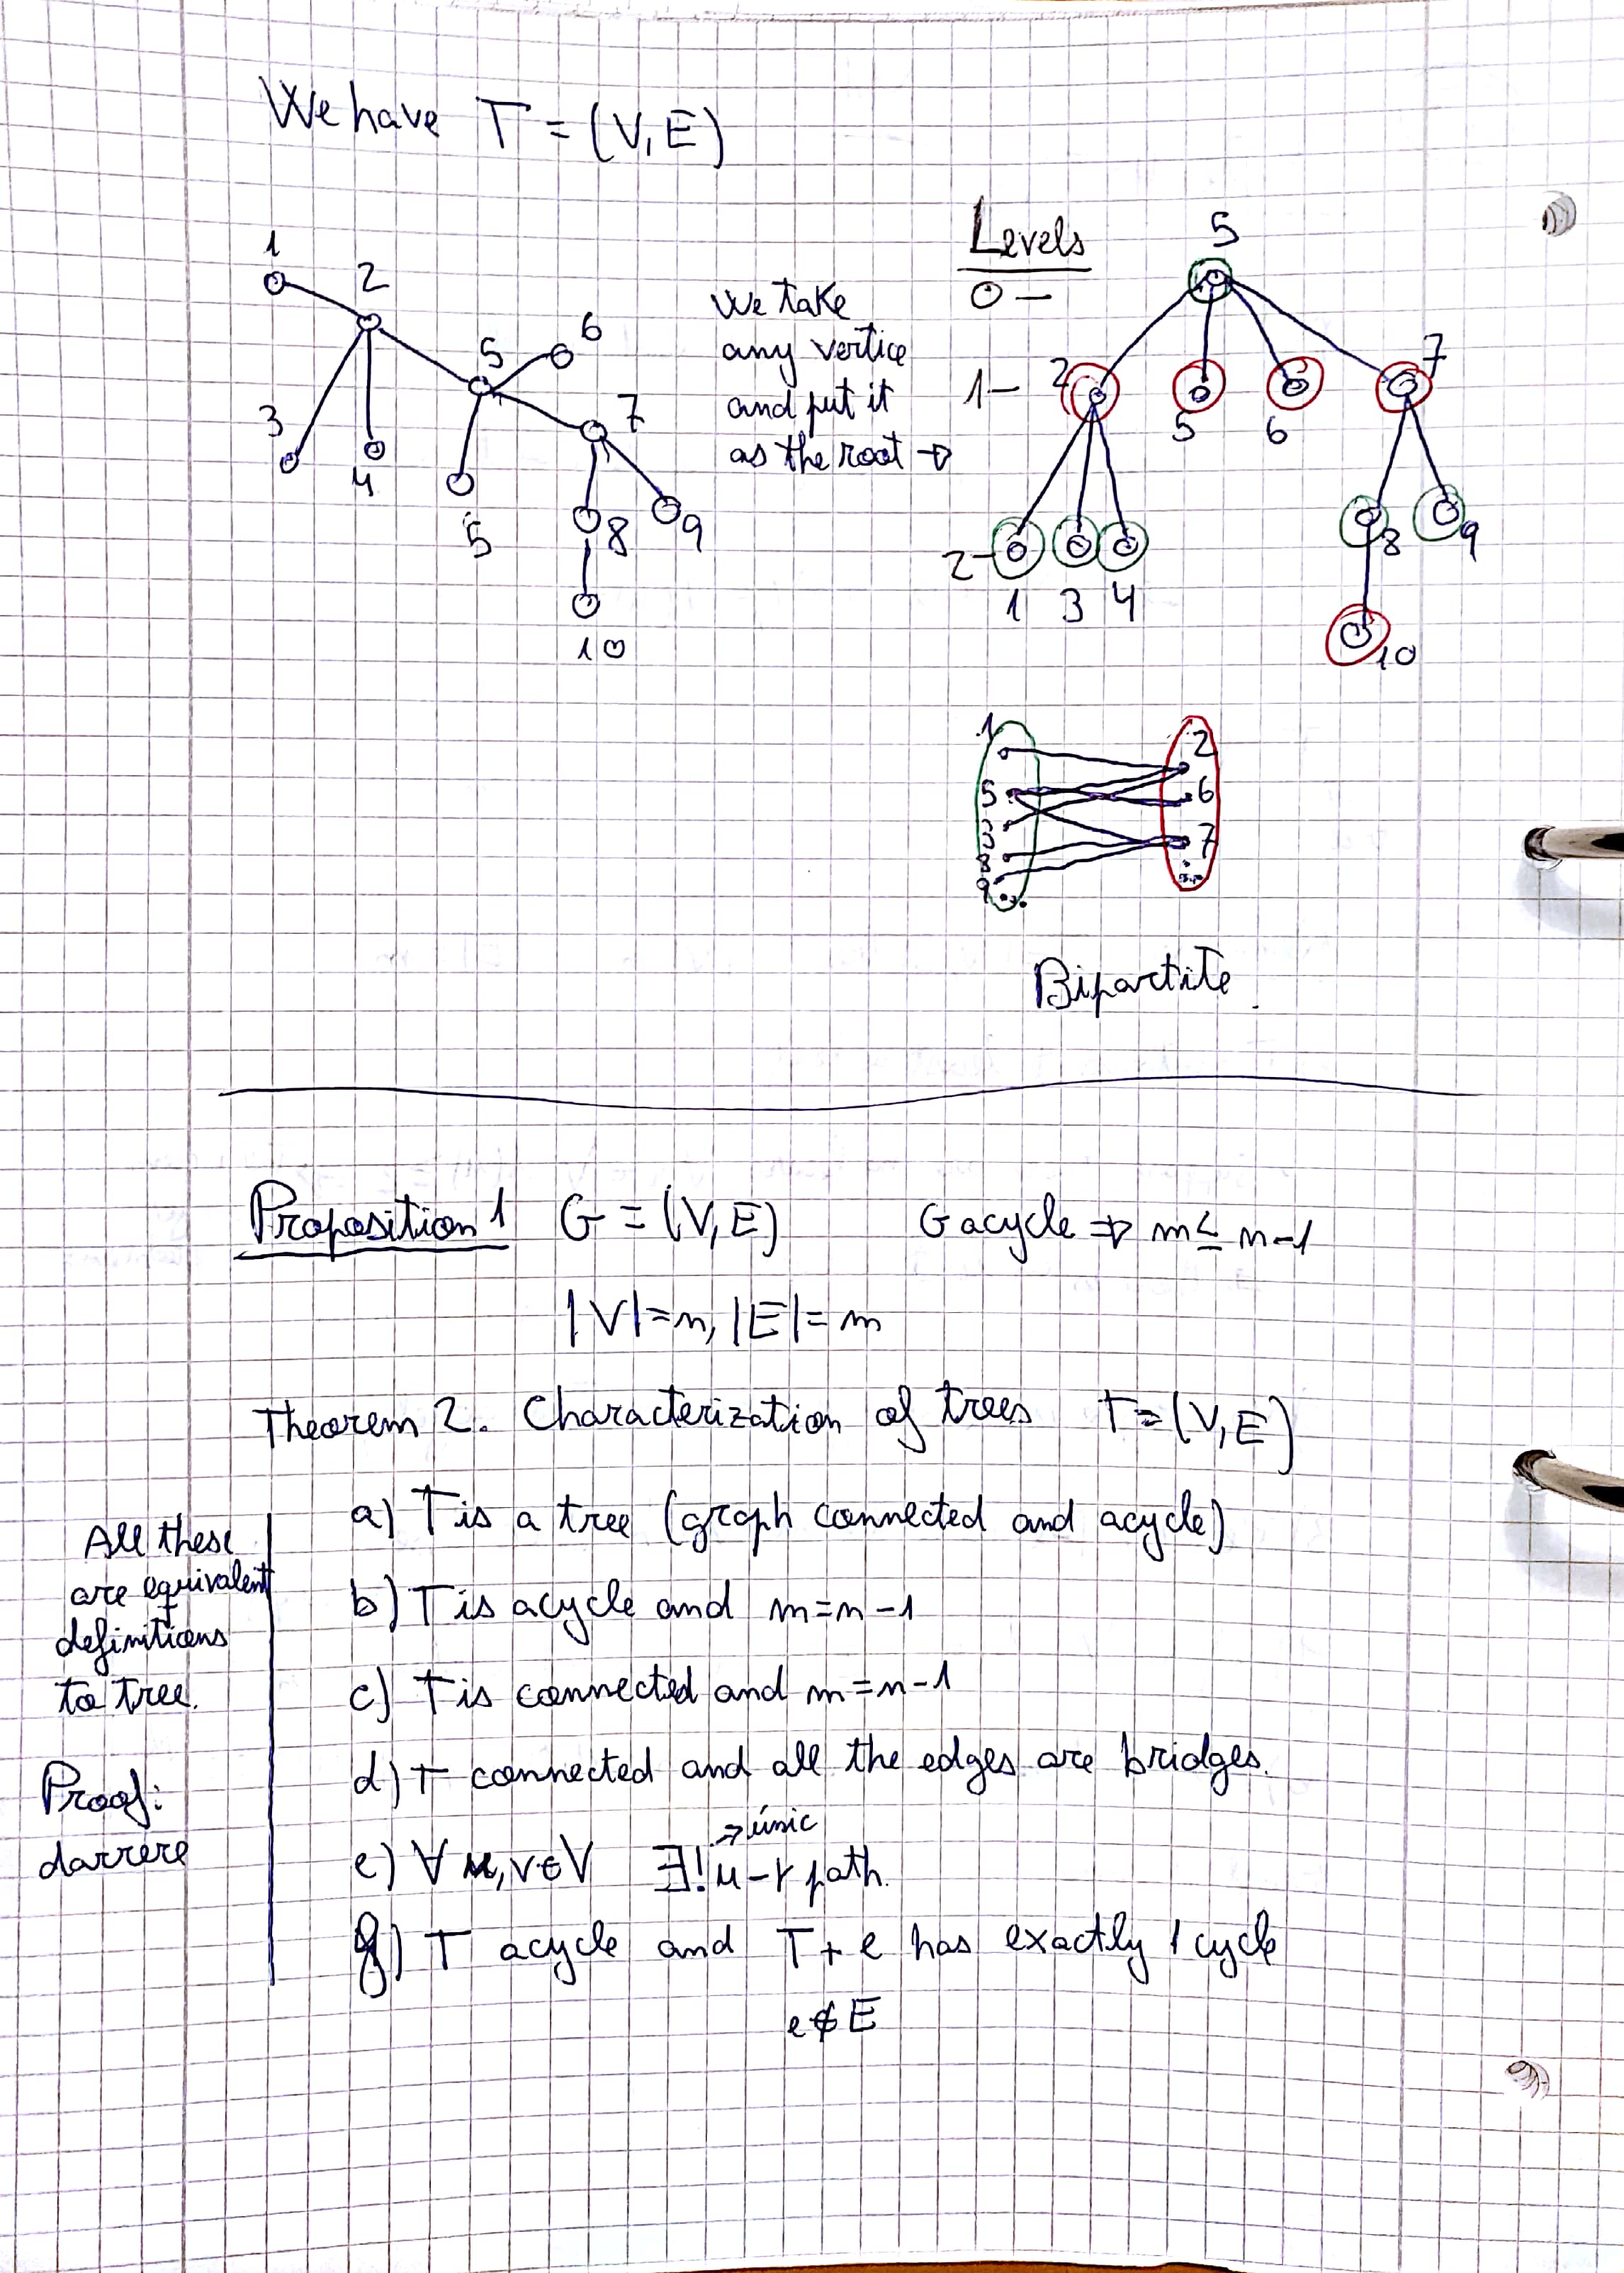 We have T = (V, E)
1
2
6
5
3
4
7
5
8
9
10
We take
any vertice
and put it
as the root →
Levels
0 —
1 —
2 —
5
2
5
6
7
1 3 4
8
9
10
1
5
3
8
9
2
6
7
Bipartite.
Proposition 1 G = (V, E) G acycle ⇒ m ≤ n-1
|V| = n, |E| = m
Theorem 2. Characterization of trees T = (V, E)
All these
are equivalent
definitions
to tree.
Proof:
darrere
a) T is a tree (graph connected and acycle)
b) T is acycle and m = n-1
c) T is connected and m = n-1
d) T connected and all the edges are bridges.
→ únic
e) ∀ u, v ∈ V ∃! u-v path.
f) T acycle and T + e has exactly 1 cycle
e ∉ E